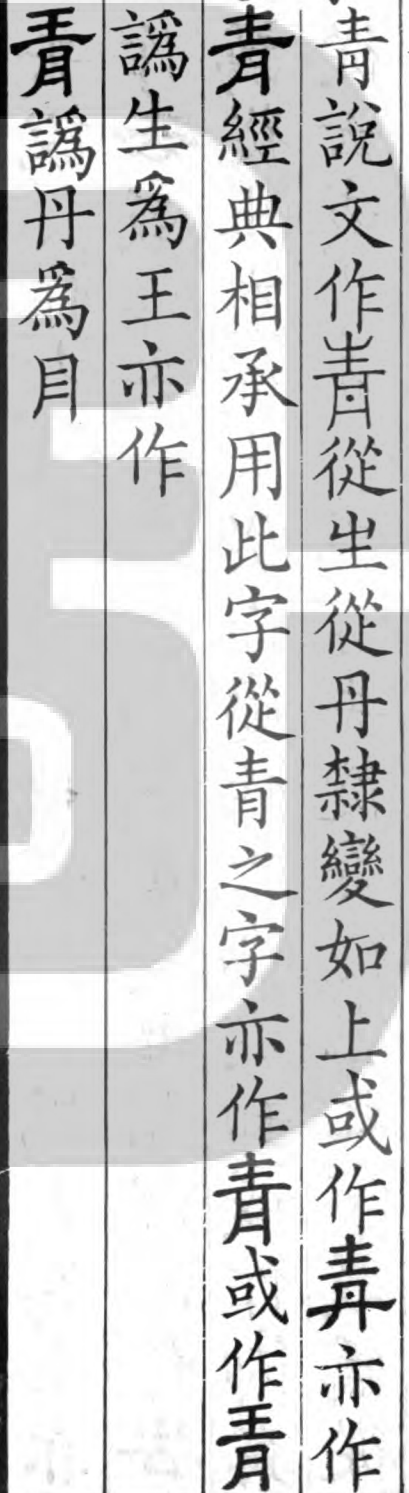 靑說文作靑從生從丹隸變如上或作青亦作
青經典相承用此字從青之字亦作青或作青
譌生爲王亦作
青譌丹爲目